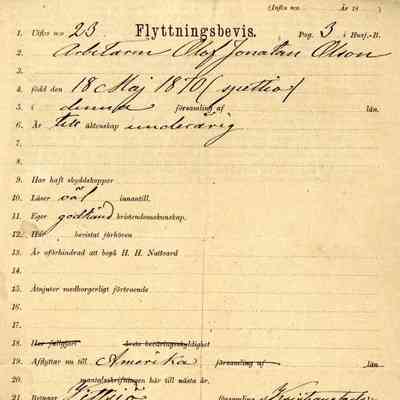 (Införd n:o År 18 )
1. Utförd n:o 23 Flyttningsbevis. Pag. 3 i Husf.-B.
2. Arbetaren Olof Jonatan Olson
3.
4. född den 18 Maj 1870
5. i denna församling af län.
6. Är till äktenskap undervärig
7.
8.
9. Har haft skyddskoppor
10. Läser väl innantill.
11. Eger godkänd kristendomskunskap.
12. Här bevistat förhören
13. Är oförhindrad att begå H. H. Nattvard
14.
15. Åtnjuter medborgerligt förtroende
16.
17.
18. Har fullgjort årets beväringsskyldighet
19. Afflyttar nu till Amerika församling af län
20. mantalsskrifningen här till nästa år.
21. Betygar församling af